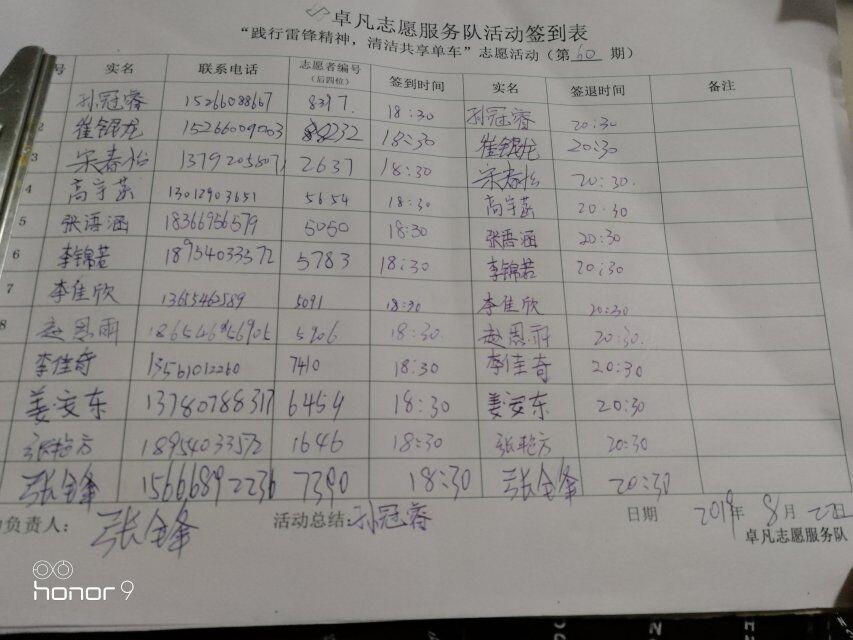 卓凡志愿服务队活动签到表
“践行雷锋精神，清洁共享单车”志愿活动（第60期）
号 实名 联系电话 志愿者编号（后四位） 签到时间 实名 签退时间 备注
孙冠睿 15266088667 8397. 18:30 孙冠睿 20:30
2 崔锟龙 15266009003 8232 18:30 崔锟龙 20:30
3 宋春怡 13792058071 2637 18:30 宋春怡 20:30.
4 高宇菡 13012903651 5654 18:30 高宇菡 20:30
5 张语涵 18366956579 5050 18:30 张语涵 20:30
6 李锦若 18954033572 5783 18:30 李锦若 20:30
7 李佳欣 1365462589 5091 18:30 李佳欣 20:30
8 赵恩雨 5906 18:30. 赵恩雨 20:30.
李佳奇 13561012260 7410 18:30 李佳奇 20:30
姜安东 13780788317 6454 18:30 姜安东 20:30
张艳方 18954033572 1646 18:30 张艳方 20:30
张全锋 15666892236 7390 18:30 张全锋 20:30
负责人： 张全锋 活动总结: 孙冠睿 日期 2019年 8月 2日
卓凡志愿服务队
honor 9